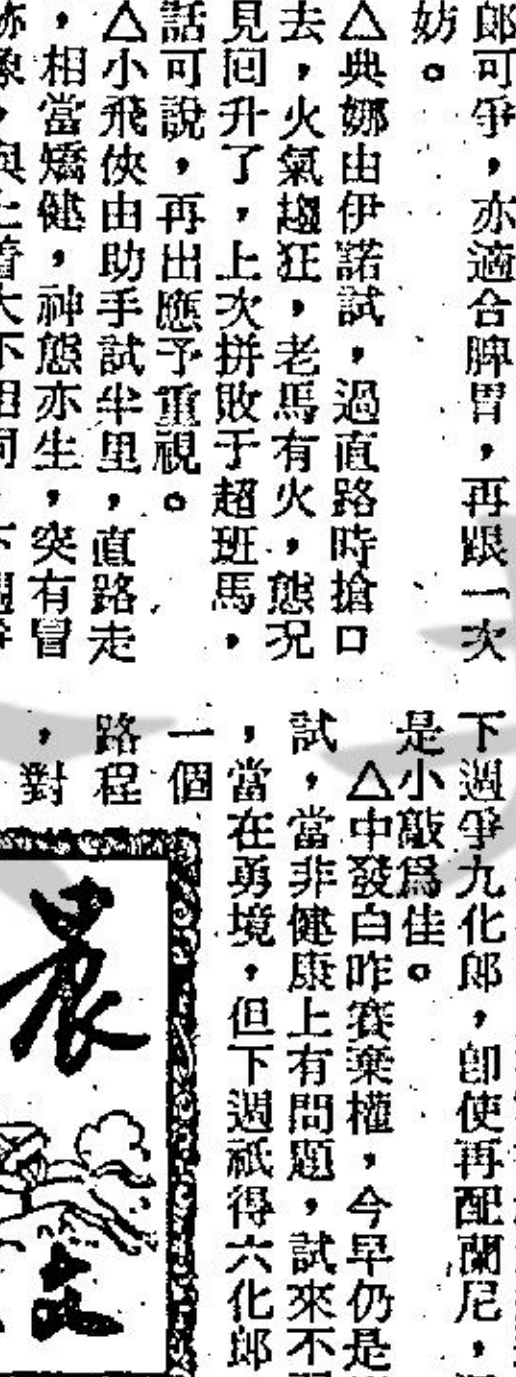 郎可爭，亦適合脾胃，再跟一次
妨。
△典娜由伊諾試，過直路時搶口
去，火氣趨狂，老馬有火，態況
見回升了，上次拼敗于超班馬，
話可說，再出應予重視。
△小飛俠由助手試半里，直路走
，相當矯健，神態亦生，突有冒
下週爭九化郎，即使再配蘭尼，
是小敲爲佳。
△中發白昨賽棄權，今早仍是
試，當非健康上有問題，試來不
，當在勇境，但下週祇得六化郎
一個
路程
，對
晨